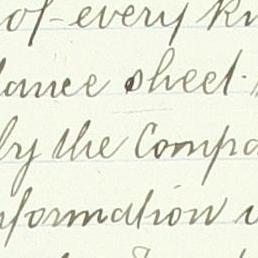 of every
lance sheet.
by the Compa
nformation